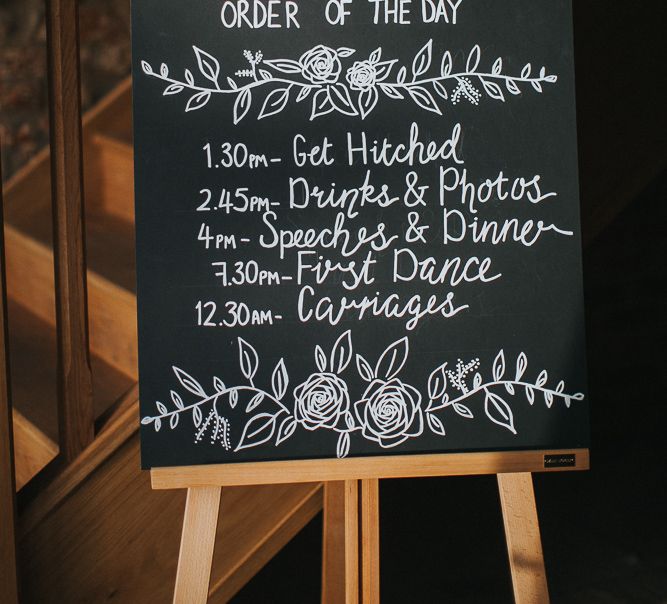 ORDER OF THE DAY
1.30PM- Get Hitched
2.45PM- Drinks & Photos
4PM- Speeches & Dinner
7.30PM- First Dance
12.30AM- Carriages